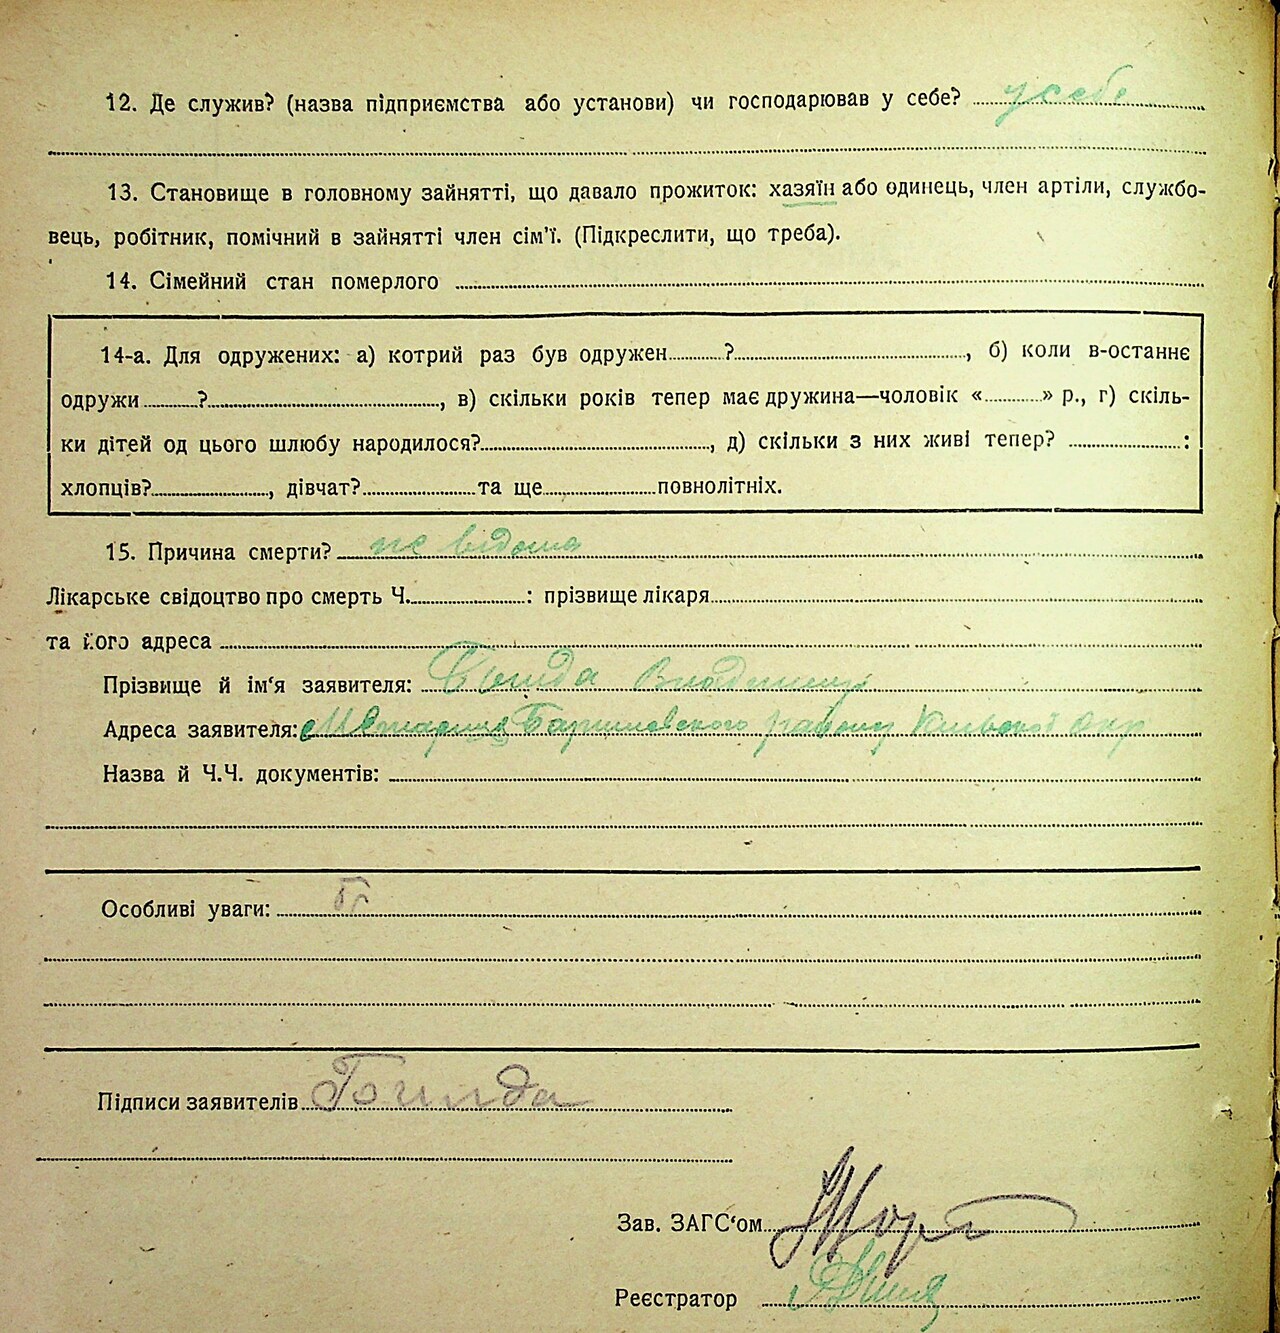 12. Де служив? (назва підприємства або установи) чи господарював у себе? у себе
13. Становище в головному зайнятті, що давало прожиток: хазяїн або одинець, член артіли, службо-
вець, робітник, помічний в зайнятті член сім’ї. (Підкреслити, що треба).
14. Сімейний стан померлого
14-а. Для одружених: а) котрий раз був одружен ?, б) коли в-останнє
одружи ?, в) скільки років тепер має дружина—чоловік « » р., г) скіль-
ки дітей од цього шлюбу народилося?, д) скільки з них живі тепер? :
хлопців?, дівчат? та ще повнолітніх.
15. Причина смерти? не відома
Лікарське свідоцтво про смерть Ч. : прізвище лікаря
та його адреса
Прізвище й ім‘я заявителя:
Адреса заявителя: району Київської окр
Назва й Ч.Ч. документів:
Особливі уваги:
Підписи заявителів
Зав. ЗАГС‘ом
Реєстратор